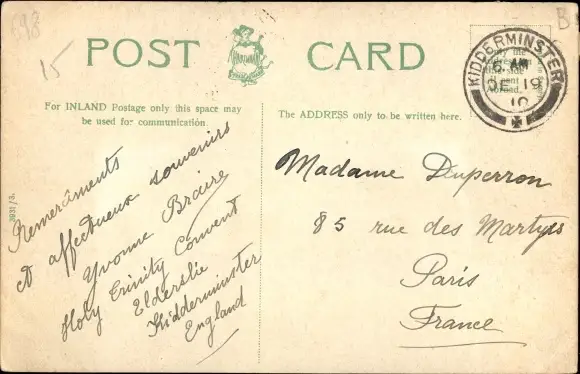 698
15
POST CARD
For INLAND Postage only this space may
be used for communication.
The ADDRESS only to be written here.
KIDDERMINSTER
6 AM
DE 19
10
3931/3.
Remerciments
et affectueux souvenirs
Yvonne Braire
Holy Trinity Convent
Elderslie
Kidderminster
England
Madame Duperron
85 rue des Martyrs
Paris
France